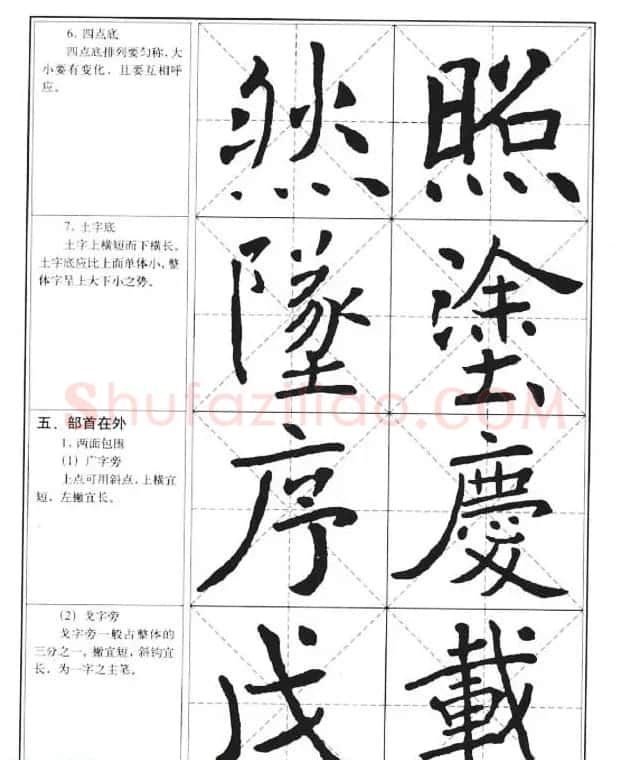 6. 四点底
四点底排列要匀称，大
小要有变化，且要互相呼
应。
然 照
7. 土字底
土字上横短而下横长。
土字底应比上面单体小，整
体字呈上大下小之势。
墜 塗
Shufaziliao.COM
五、部首在外
1. 两面包围
(1) 广字旁
上点可用斜点，上横宜
短，左撇宜长。
序 慶
(2) 戈字旁
戈字旁一般占整体的
三分之一。撇宜短，斜钩宜
长，为一字之主笔。
戊 載